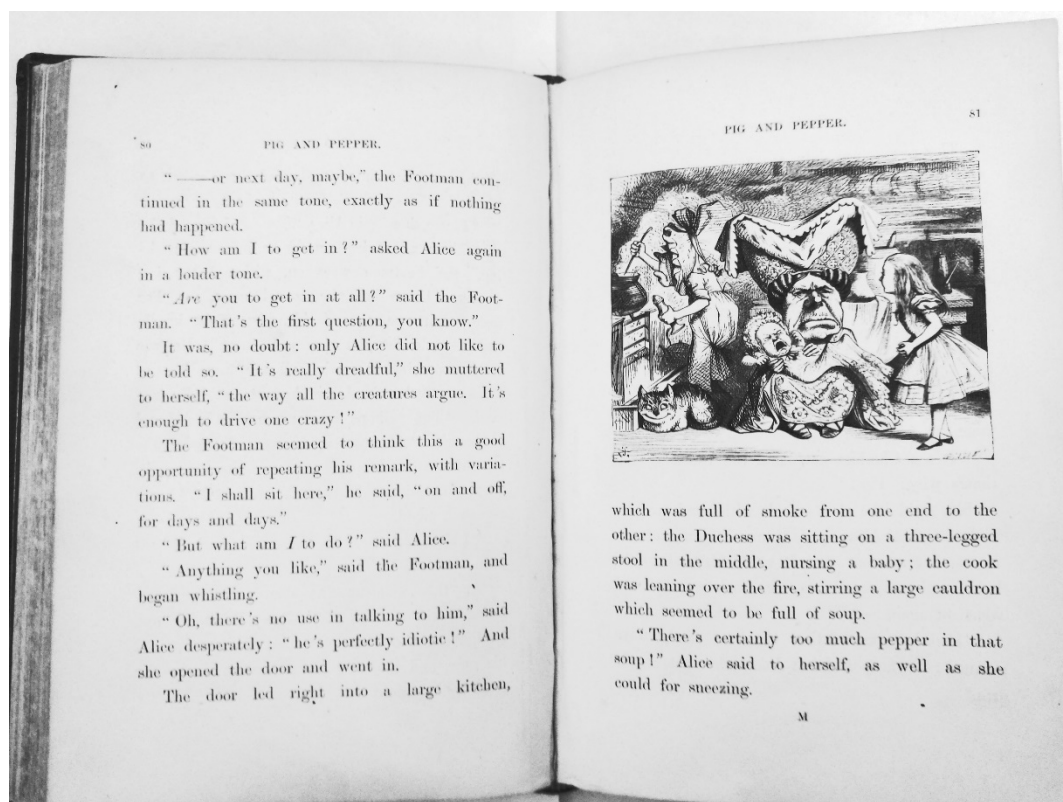 80
PIG AND PEPPER.
“ ——or next day, maybe,” the Footman con-
tinued in the same tone, exactly as if nothing
had happened.
“ How am I to get in ? ” asked Alice again
in a louder tone.
“ Are you to get in at all ? ” said the Foot-
man. “ That’s the first question, you know.”
It was, no doubt : only Alice did not like to
be told so. “ It’s really dreadful,” she muttered
to herself, “ the way all the creatures argue. It’s
enough to drive one crazy ! ”
The Footman seemed to think this a good
opportunity of repeating his remark, with varia-
tions. “ I shall sit here,” he said, “ on and off,
for days and days.”
“ But what am I to do ? ” said Alice.
“ Anything you like,” said the Footman, and
began whistling.
“ Oh, there’s no use in talking to him,” said
Alice desperately : “ he’s perfectly idiotic ! ” And
she opened the door and went in.
The door led right into a large kitchen,
PIG AND PEPPER.
81
which was full of smoke from one end to the
other : the Duchess was sitting on a three-legged
stool in the middle, nursing a baby ; the cook
was leaning over the fire, stirring a large cauldron
which seemed to be full of soup.
“ There’s certainly too much pepper in that
soup ! ” Alice said to herself, as well as she
could for sneezing.
M